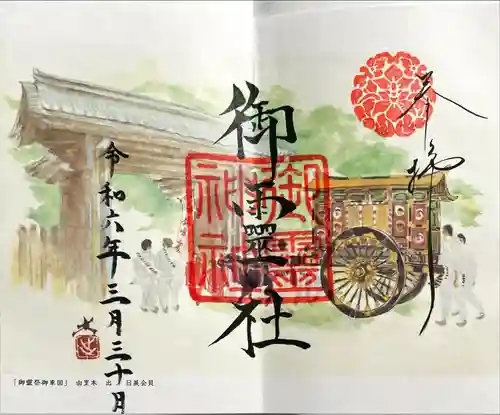 奉拝
御靈社
御靈
神社
令和六年三月三十日
「御靈祭御車図」 由里本 出 日展会員